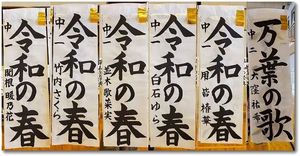 万葉の歌
中二 大窪
令和の春
中一
令和の春
中一 白石ゆら
令和の春
中一 並木歌菜実
令和の春
中一 竹内さくら
令和の春
中一 関根暖乃花